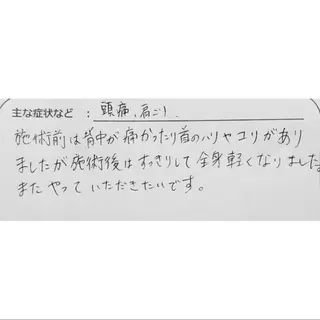 主な症状など : 頭痛、肩こり
施術前は背中が痛かったり首のハリやコリがあり
ましたが施術後はすっきりして全身軽くなりました。
またやっていただきたいです。